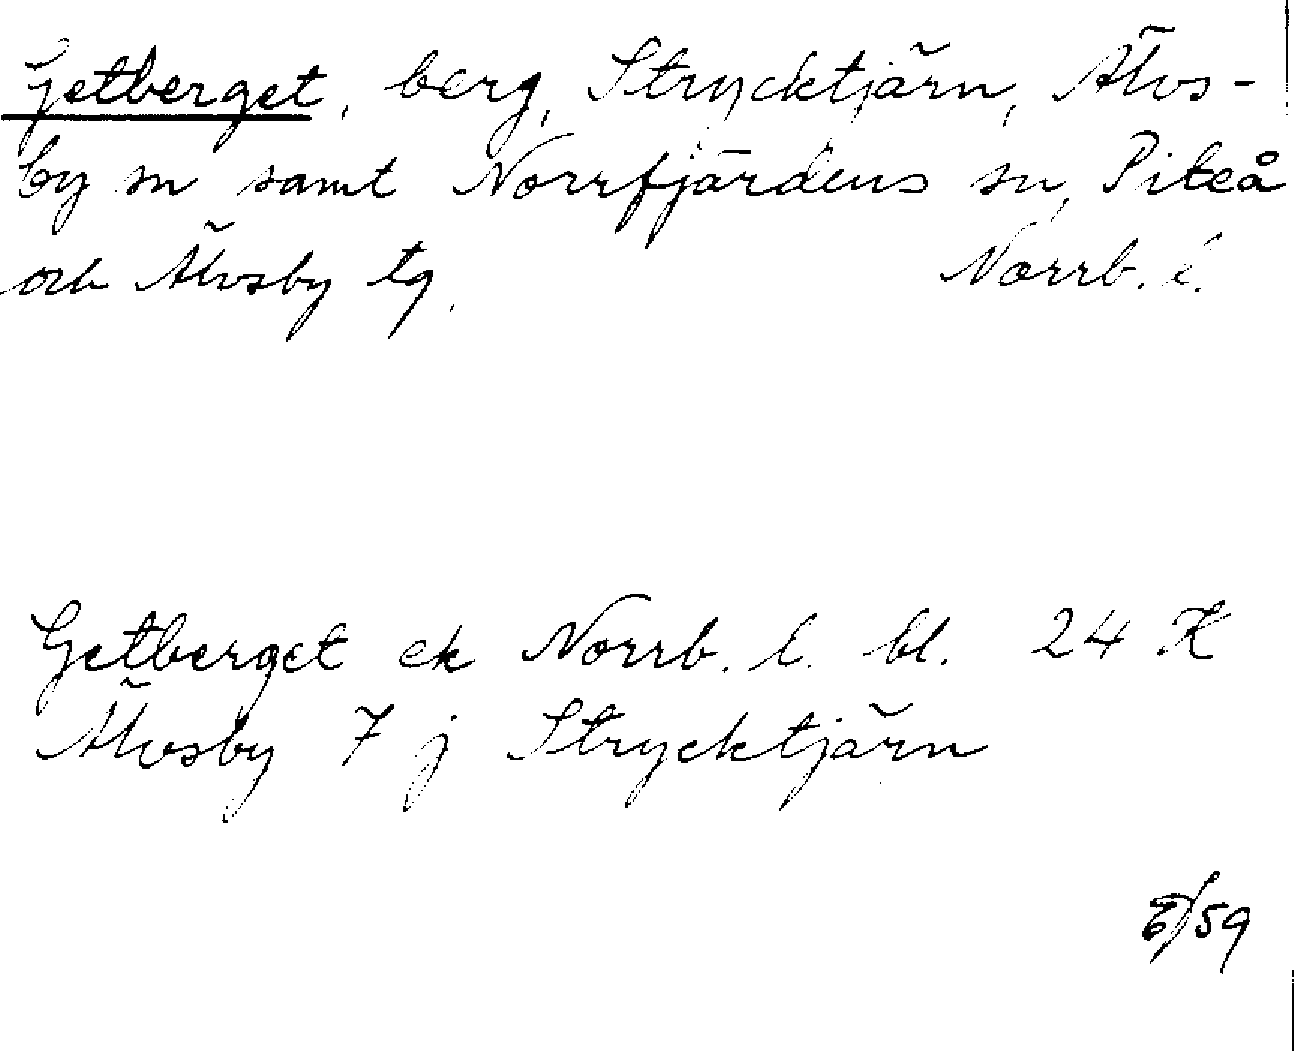 Getberget, berg, Strycktjärn, Älvs-
by sn samt Norrfjärdens sn, Piteå
och Älvsby tg. Norrb. l.
Getberget ek Norrb. l. bl. 24 K
Älvsby 7 j Strycktjärn
/59